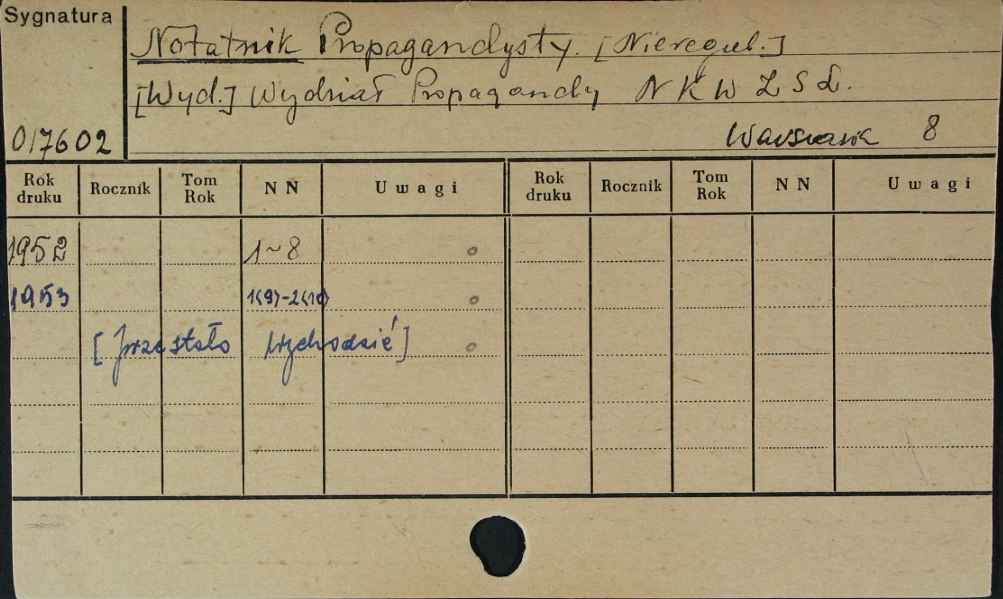 Sygnatura
Notatnik Propagandysty. [Nieregul.]
[Wyd.] Wydział Propagandy NKW ZSL.
017602
Warszawa 8
Rok druku Rocznik Tom Rok NN Uwagi Rok druku Rocznik Tom Rok NN Uwagi
1952 1-8
1953 1(9)-2(10)
[przestało wychodzić]